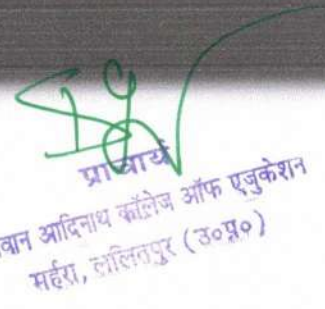 प्राचार्य
वान आदिनाथ कॉलेज ऑफ एजुकेशन
महॅरा, ललितपुर (उ०प्र०)